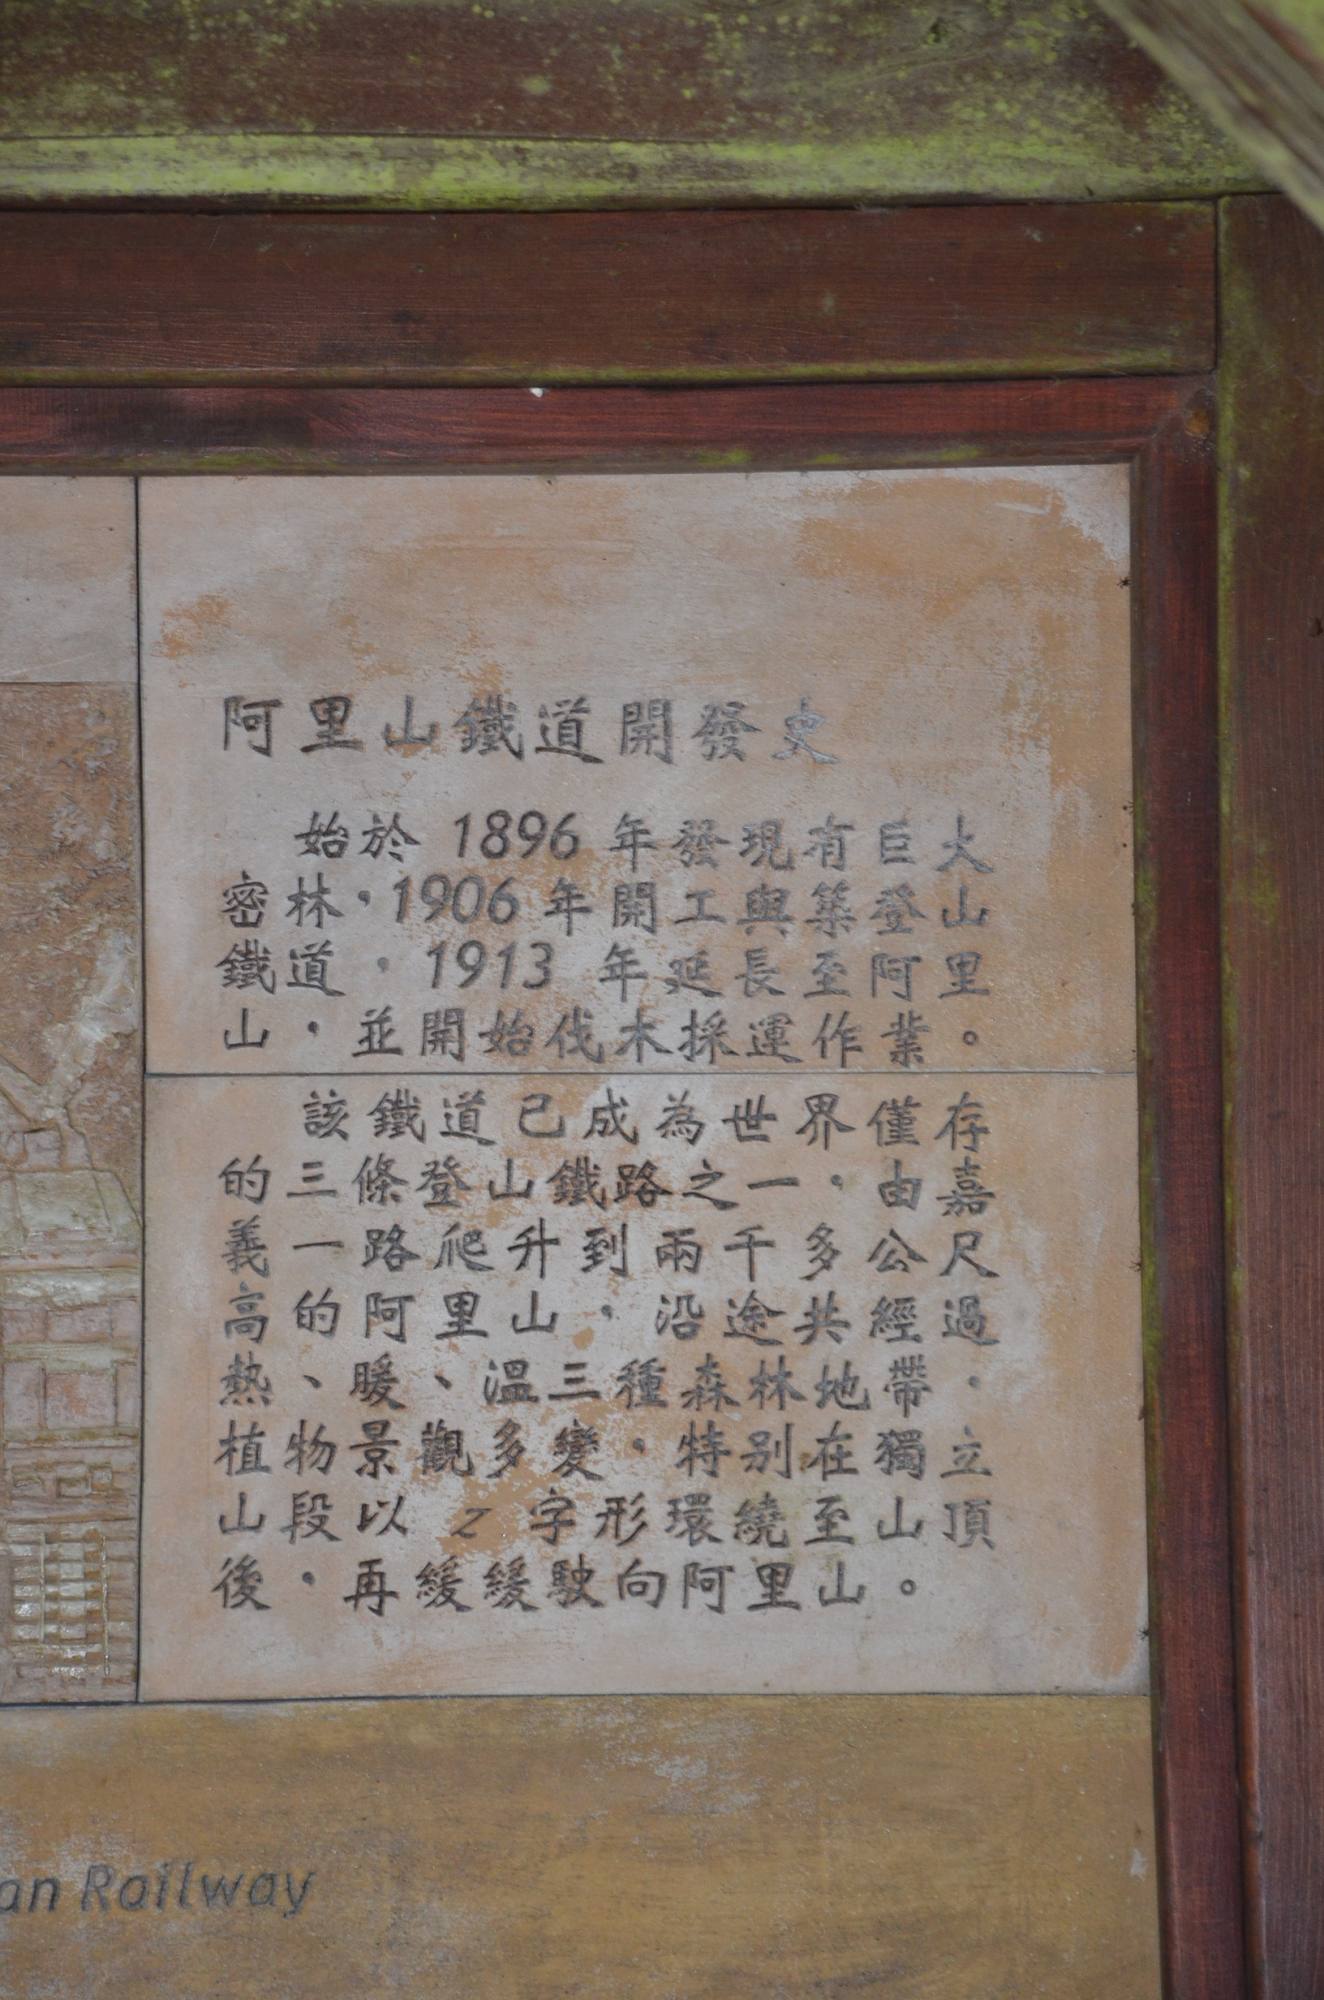 阿里山鐵道開發史
始於 1896 年發現有巨大
密林，1906 年開工興築登山
鐵道，1913 年延長至阿里
山，並開始伐木採運作業。
該鐵道已成為世界僅存
的三條登山鐵路之一，由嘉
義一路爬升到兩千多公尺
高的阿里山，沿途共經過
熱、暖、溫三種森林地帶，
植物景觀多變，特別在獨立
山段以 Z 字形環繞至山頂
後，再緩緩駛向阿里山。
an Railway